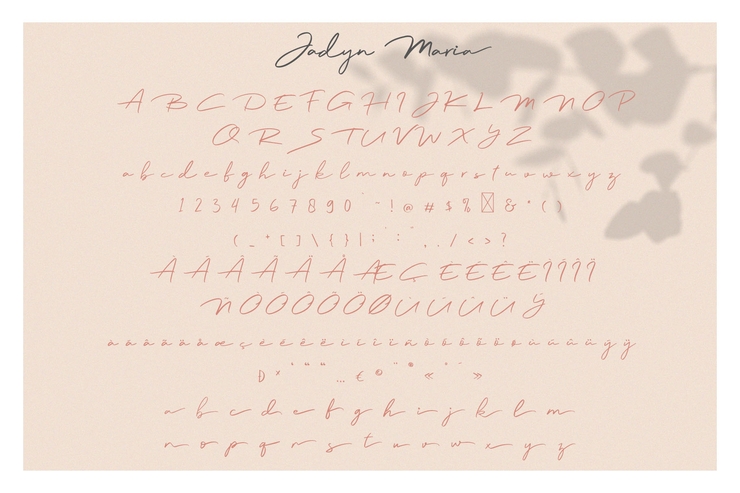 Jadyn Maria
A B C D E F G H I J K L M N O P
Q R S T U V W X Y Z
a b c d e f g h i j k l m n o p q r s t u v w x y z
1 2 3 4 5 6 7 8 9 0 ~ ! @ # $ % & * ( )
( _ + [ ] \ { } | ; : , . / < > ?
À Á Â Ã Ä Å Æ Ç È É Ê Ë Ì Í Î Ï
Ñ Ò Ó Ô Õ Ö Ø Ù Ú Û Ü Ý
à á â ã ä å æ ç è é ê ë ì í î ï ñ ò ó ô õ ö ø ù ú û ü ý ÿ
Ð × ‘ “ “ … € © ¨ ® « »
a b c d e f g h i j k l m
n o p q r s t u v w x y z